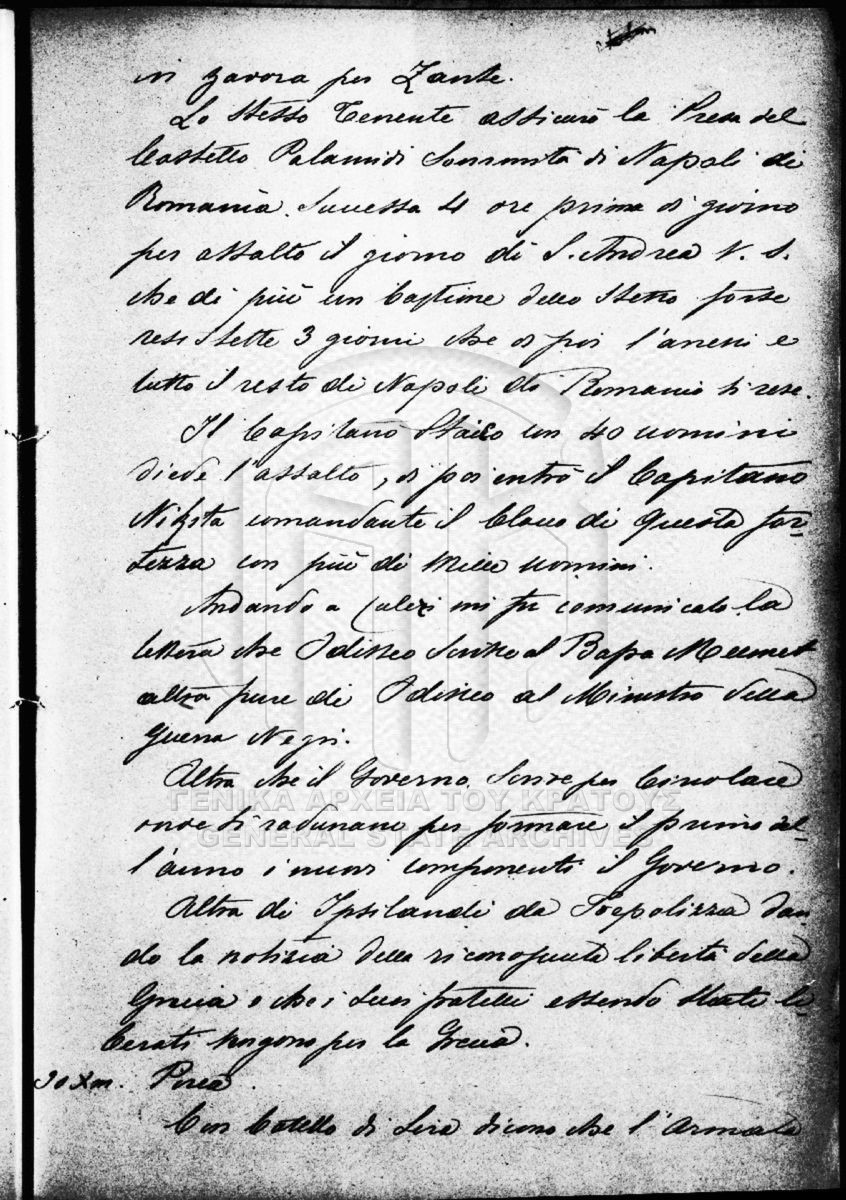 in zavora per Zante.
Lo stesso Tenente assicurò la Presa del
Castello Palamidi Sommità di Napoli di
Romania. Successa 4 ore prima di giorno
per assalto il giorno di S. Andrea V. S.
che di più un Bastione dello stesso forte
resistette 3 giorni che di poi l'arresi e
tutto il resto di Napoli di Romania si rese.
Il Capitano Staico con 40 uomini
diede l'assalto, di poi entrò il Capitano
Nikita comandante il Bloco di questa for-
tezza con più di mille uomini.
Andando a mi fu comunicato la
lettera che Odisseo scrisse al Bassa Meemet
altra pure di Odisseo al Ministro della
Guerra Negri.
Altra che il Governo scrive per Circolare
onde si radunano per formare il primo del-
l'anno i nuovi componenti il Governo.
Altra di Ipsilandi da Tropolizza dan-
do la notizia della riconosciuta libertà della
Grecia e che i suoi fratelli essendo stati li-
berati vengono per la Grecia.
30 Xm. Pirea.
Con Batello di Sira dicono che l'Armata
ΓΕΝΙΚΑ ΑΡΧΕΙΑ ΤΟΥ ΚΡΑΤΟΥΣ
GENERAL STATE ARCHIVES